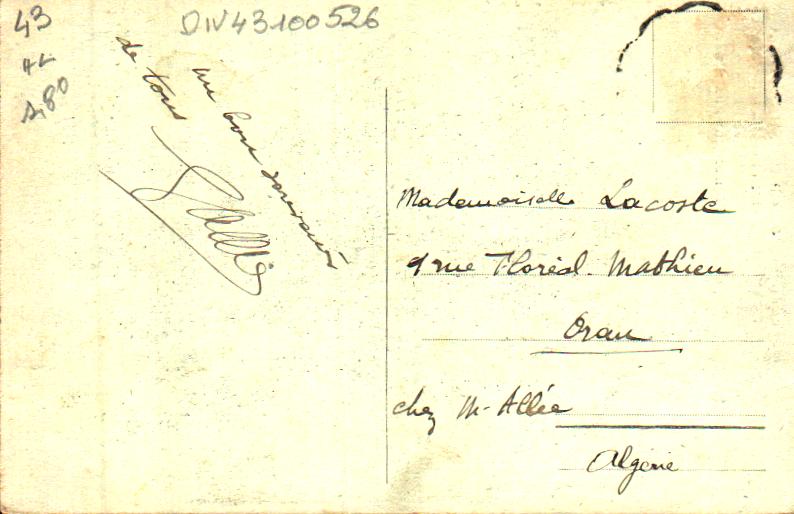 43
DIV43100526
un bon souvenir
de tous
Mademoiselle Lacoste
9 rue Floréal-Mathieu
Oran
chez M-Allée
Algerie